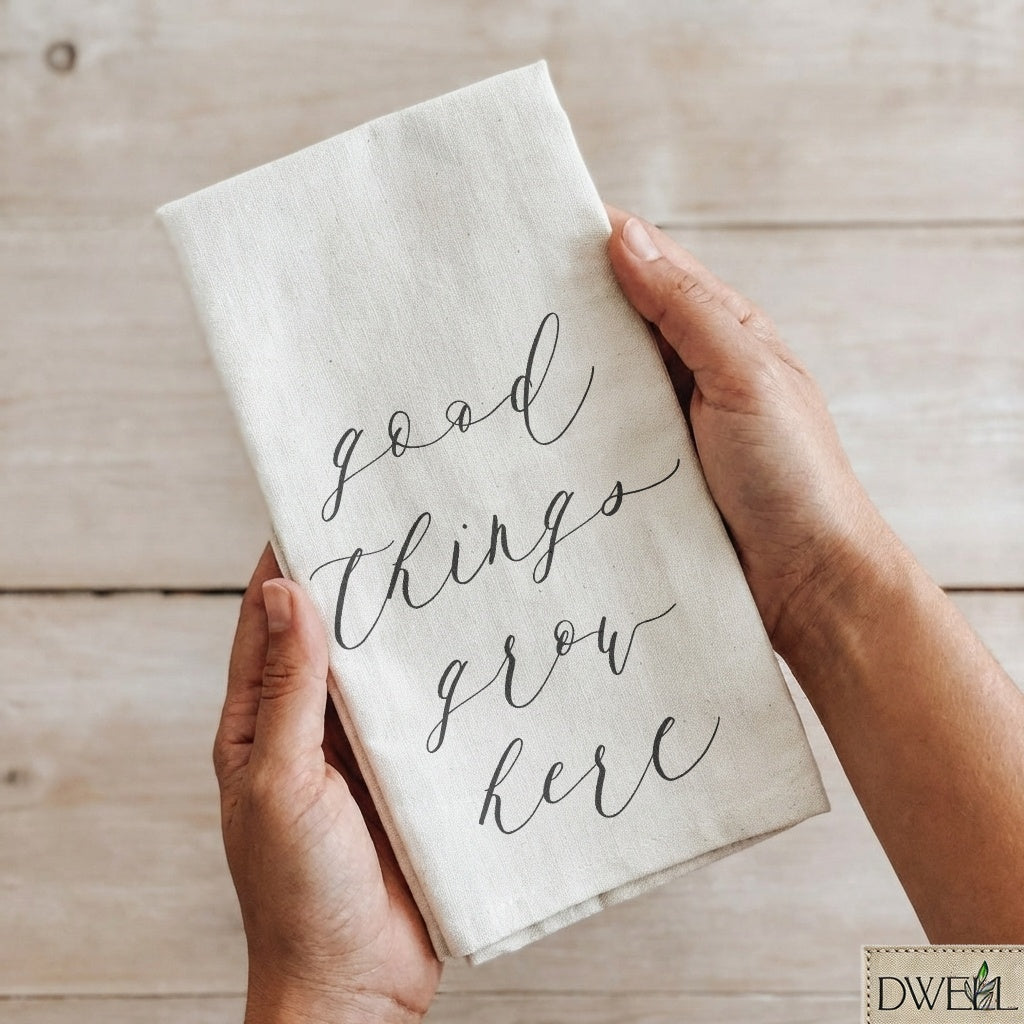 good
things
grow
here
DWELL